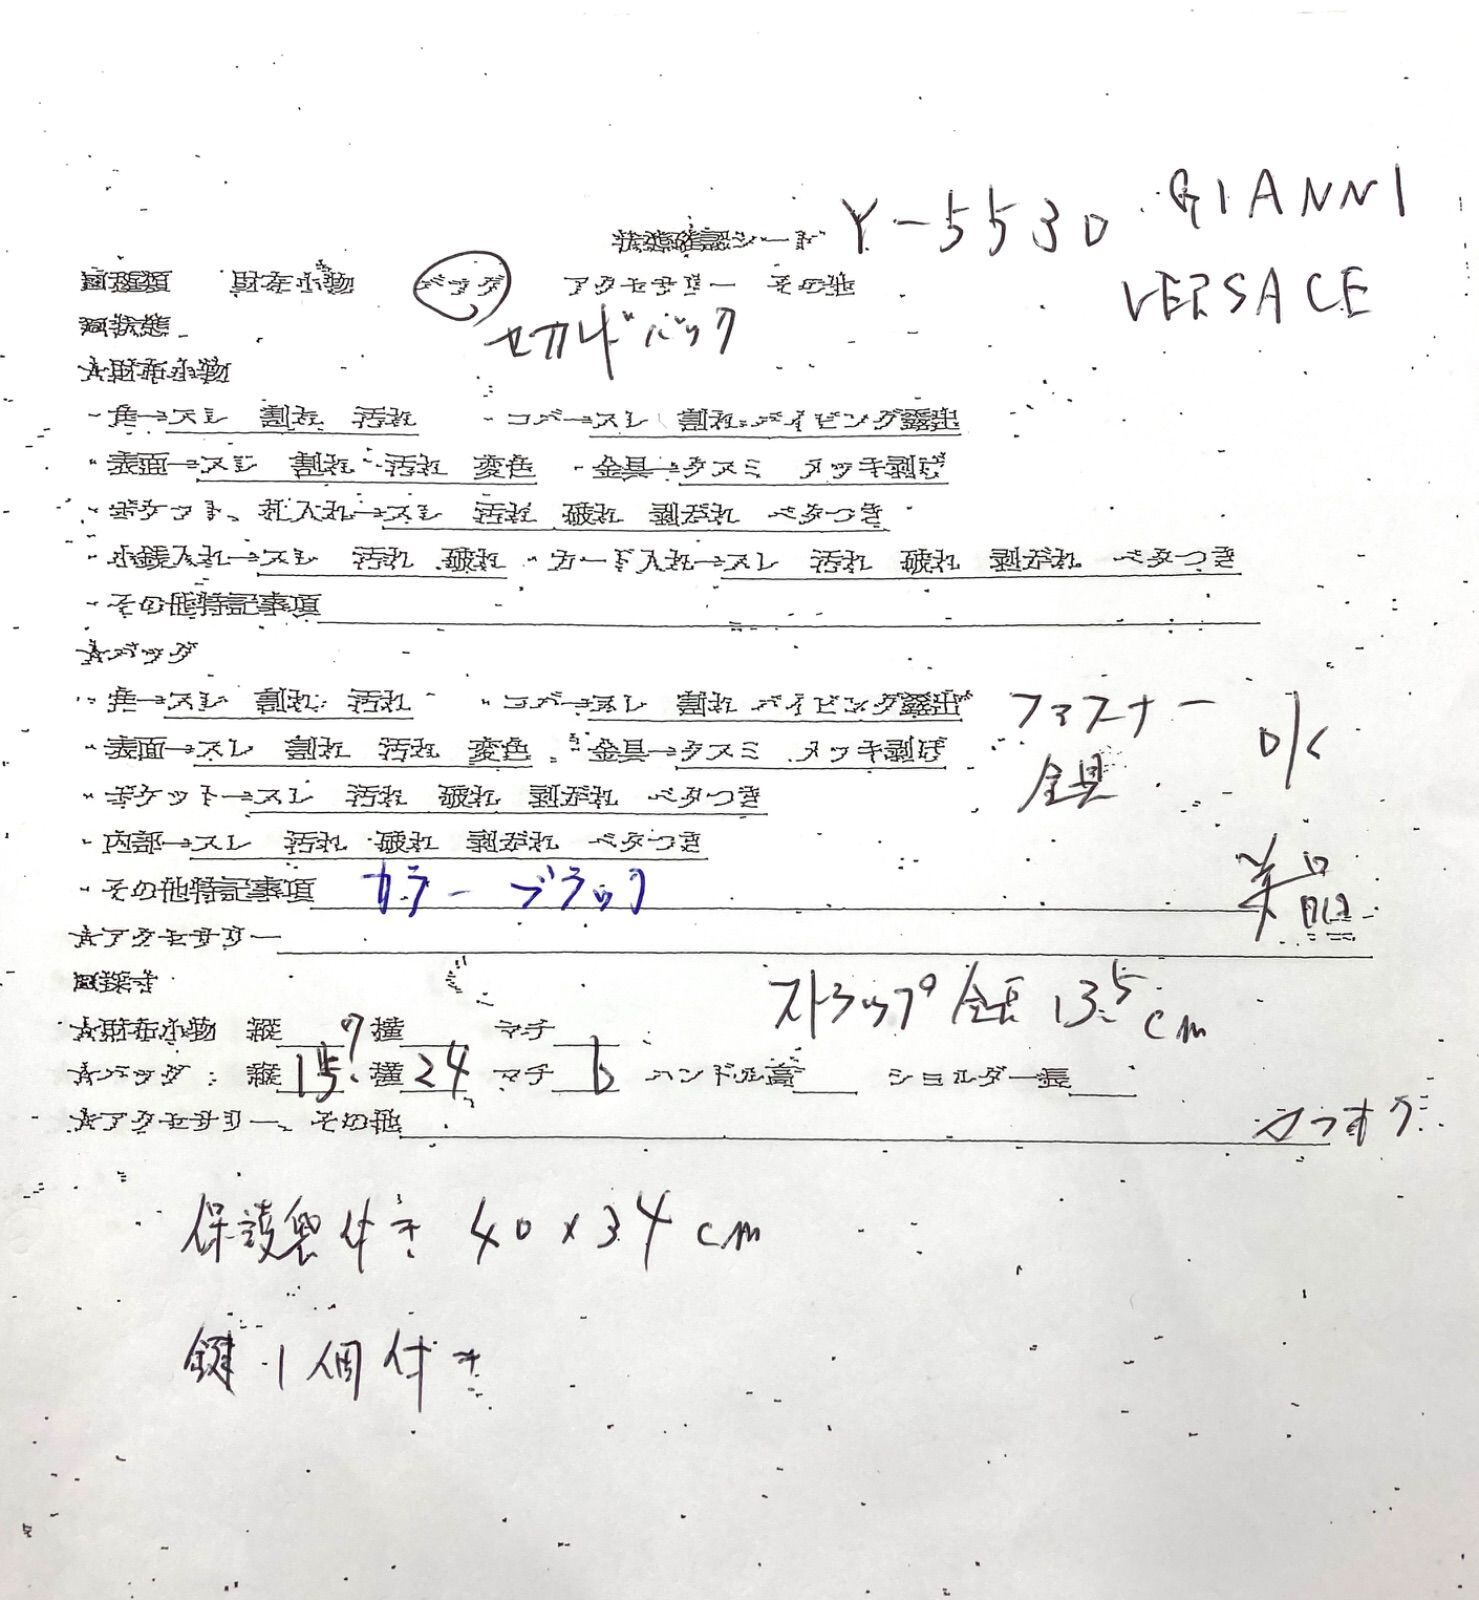 状態確認シート Y-5530 GIANNI
VERSACE
種類 財布小物 バッグ アクセサリー その他
セカンドバック
状態
☆財布小物
・角→スレ 割れ 汚れ ・コバ→スレ 割れ パイピング露出
・表面→スレ 割れ 汚れ 変色 ・金具→クスミ メッキ剥げ
・ポケット、札入れ→スレ 汚れ 破れ 剥がれ ベタつき
・小銭入れ→スレ 汚れ 破れ ・カード入れ→スレ 汚れ 破れ 剥がれ ベタつき
・その他特記事項
☆バッグ
・角→スレ 割れ 汚れ ・コバ→スレ 割れ パイピング露出
・表面→スレ 割れ 汚れ 変色 ・金具→クスミ メッキ剥げ
ファスナー
金具
OK
・ポケット→スレ 汚れ 破れ 剥がれ ベタつき
・内部→スレ 汚れ 破れ 剥がれ ベタつき
・その他特記事項 カラー ブラック
美品
☆アクセサリー
採寸
ストラップ 全長 13.5cm
☆財布小物 縦 横 マチ
☆バッグ: 縦 15 横 24 マチ 6 ハンドル高 ショルダー長
☆アクセサリー、その他
保護袋付き 40×34cm
鍵 1個付き